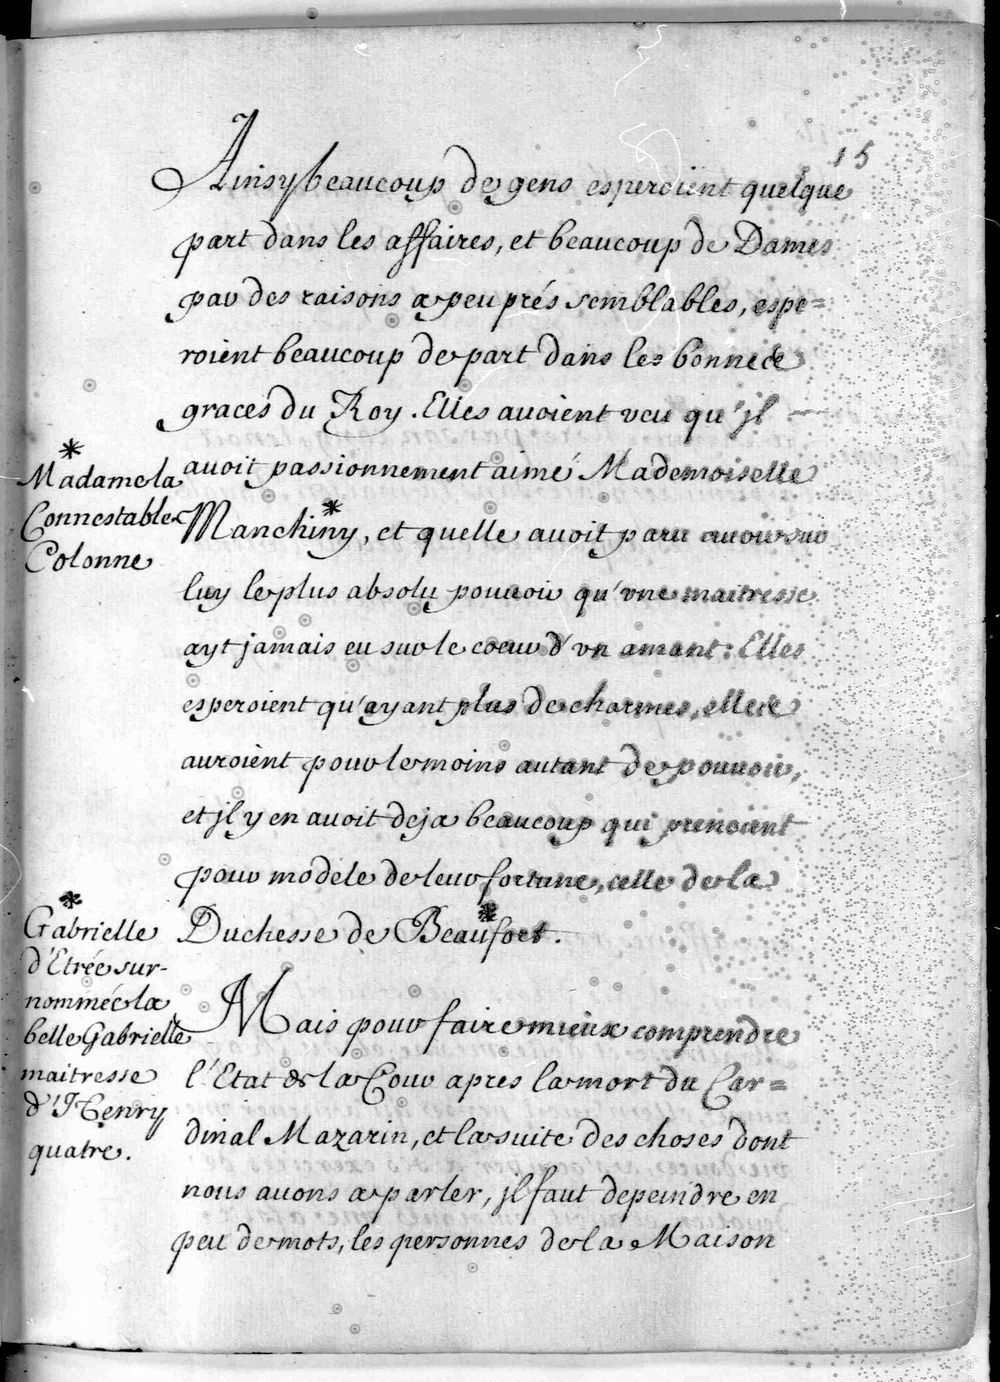 15
Ainsy beaucoup de gens esperoient quelque
part dans les affaires, et beaucoup de Dames
par des raisons a peu prés semblables, espe=
roient beaucoup de part dans les bonnes
graces du Roy. Elles avoient veu qu'jl
avoit passionnement aimé Mademoiselle
Manchiny*, et quelle avoit paru avoir sur
luy le plus absolu pouvoir qu'vne maitresse
ayt jamais eu sur le coeur d'vn amant: Elles
esperoient qu'ayant plus de charmes, elles
auroient pour le moins autant de pouvoir,
et jl y en avoit deja beaucoup qui prenoient
pour modele de leur fortune, celle de la
Duchesse de Beaufort*.
Mais pour faire mieux comprendre
l'Etat de la Cour apres la mort du Car=
dinal Mazarin, et la suite des choses dont
nous avons a parler, jl faut depeindre en
peu de mots, les personnes de la Maison
*
Madame la
Connestable
Colonne
*
Gabrielle
d'Etrée sur-
nommée la
belle Gabrielle
maitresse
d'Henry
quatre.